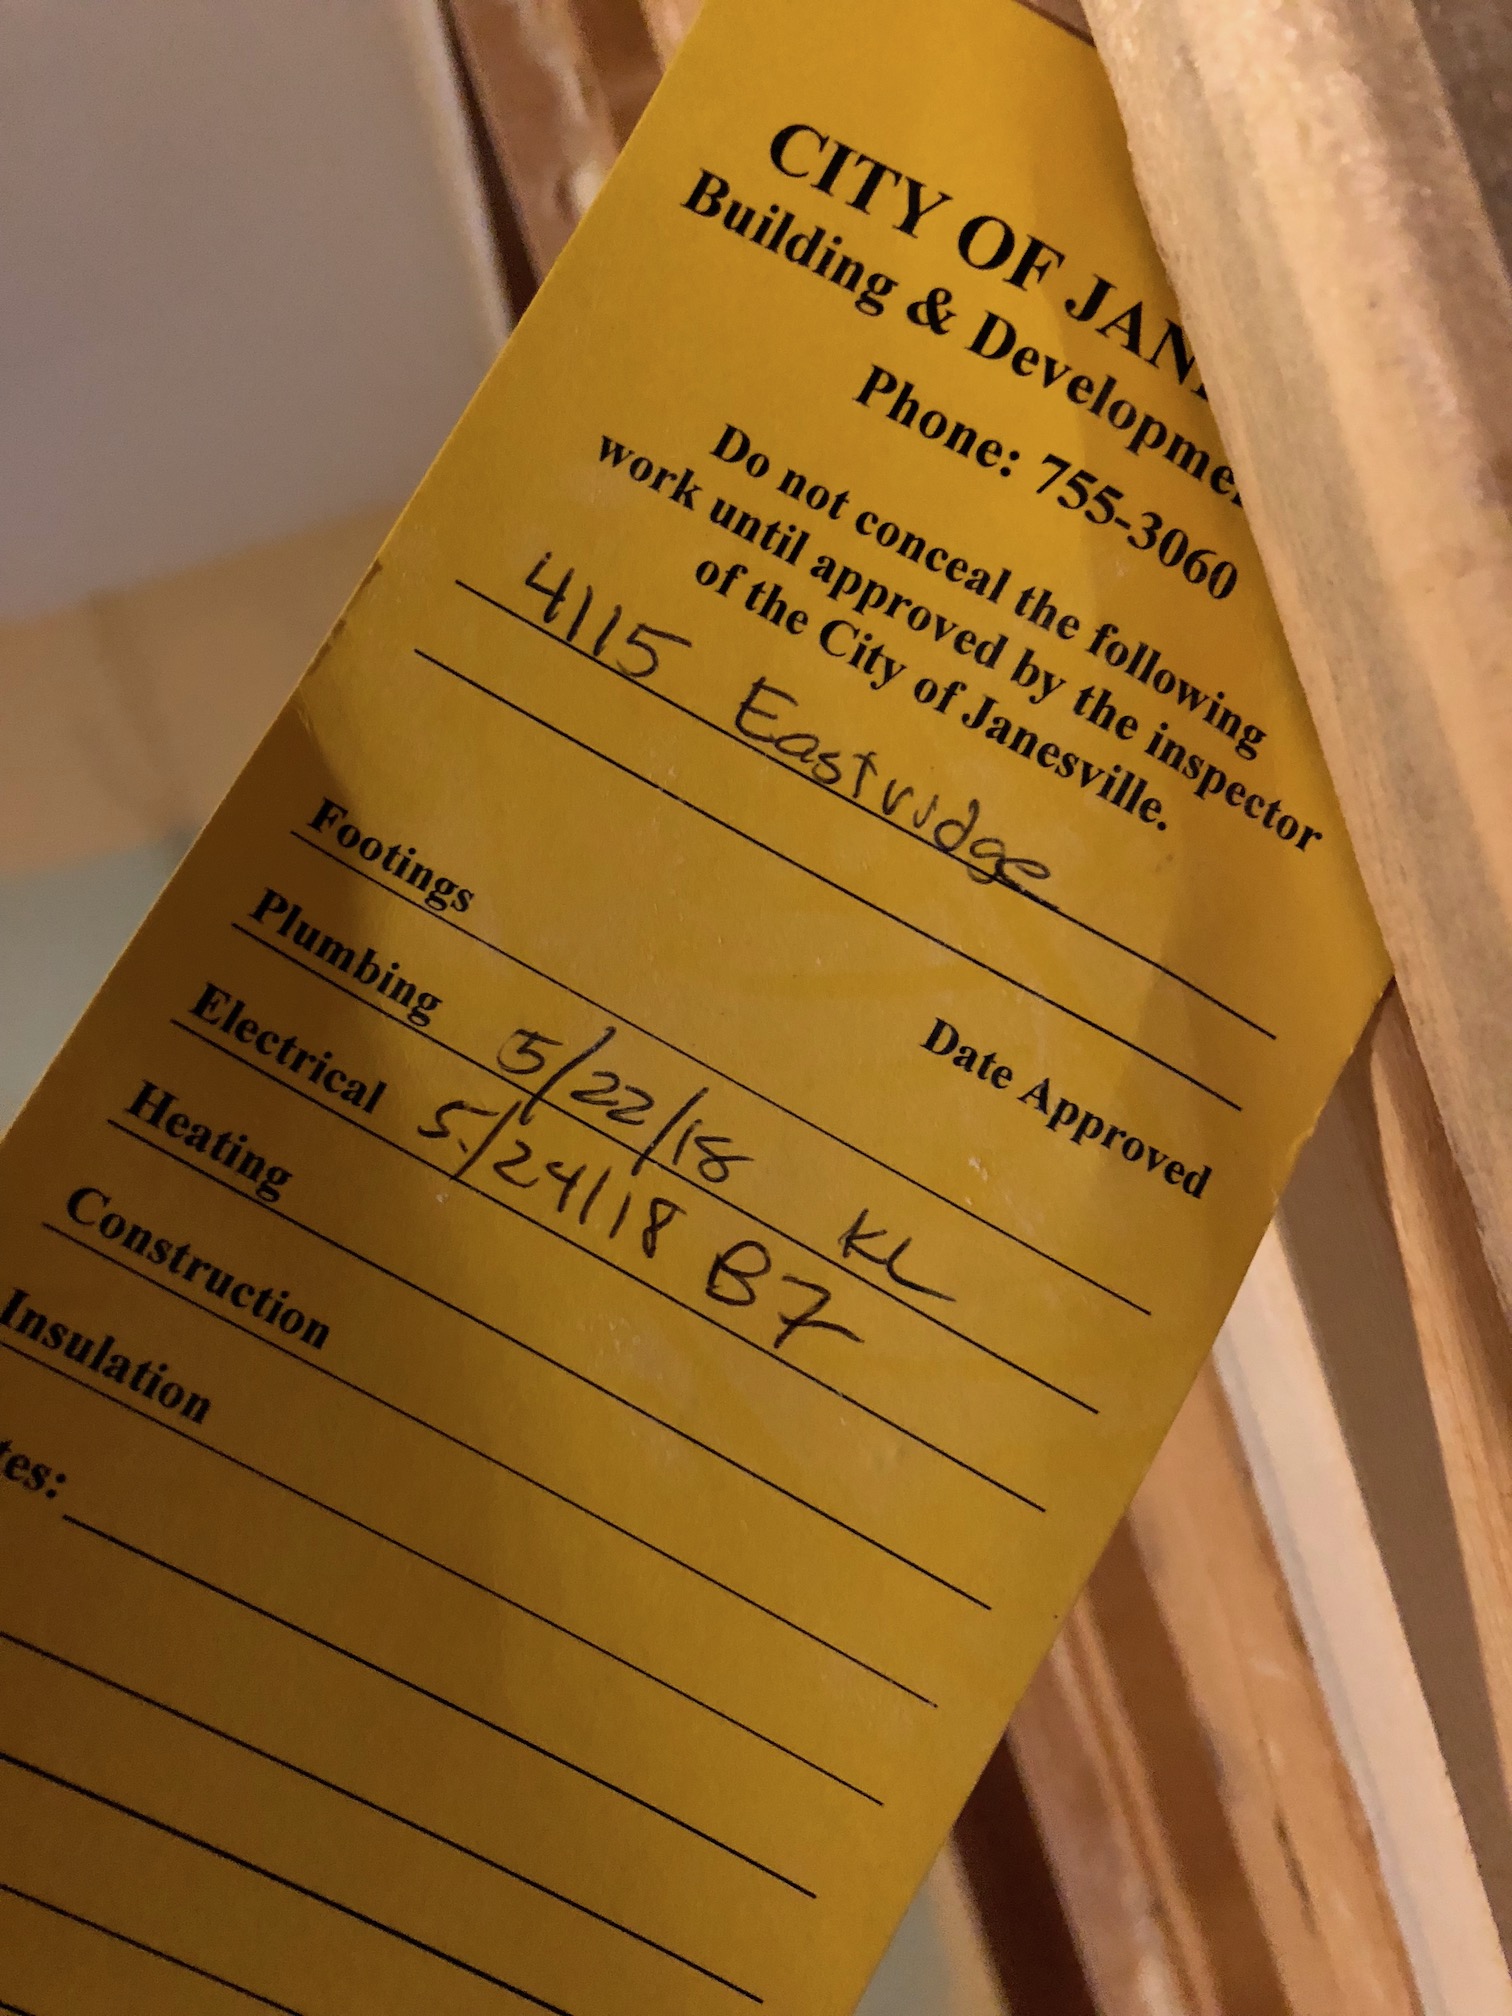 CITY OF JAN
Building & Developme
Phone: 755-3060
Do not conceal the following
work until approved by the inspector
of the City of Janesville.
4115 Eastridge
Date Approved
Footings
Plumbing 5/22/18 KL
Electrical 5/24/18
Heating
Construction
Insulation
tes: